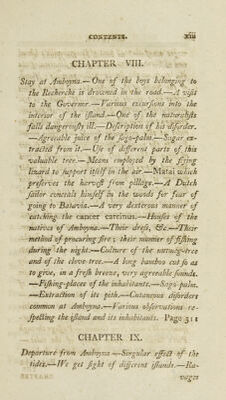 CONTENTS. xiii
CHAPTER VIII.
Stay at Amboyna.—One of the boys belonging to
the Recherche is drowned in the road.—A visit
to the Governor.—Various excursions into the
interior of the island.—One of the naturalists
falls dangerously ill.—Description of his disorder.
—Agreeable juice of the sago-palm.—Sugar ex-
tracted from it.—Use of different parts of this
valuable tree.—Means employed by the flying
lizard to support itself in the air.—Matai which
preserves the harvest from pillage.—A Dutch
sailor conceals himself in the woods for fear of
going to Batavia.—A very dexterous manner of
catching the cancer carcinus.—Houses of the
natives of Amboyna.—Their dress, &c.—Their
method of procuring fire; their manner of fishing
during the night.—Culture of the nutmeg-tree
and of the clove-tree.—A long bamboo cut so as
to give, in a fresh breeze, very agreeable sounds.
—Fishing-places of the inhabitants.—Sago palm.
—Extraction of its pith.—Cutaneous disorders
common at Amboyna.—Various observations re-
specting the island and its inhabitants. Page 311
CHAPTER IX.
Departure from Amboyna—Singular effect of the
tides.—We get sight of different islands.—Ra-
vages